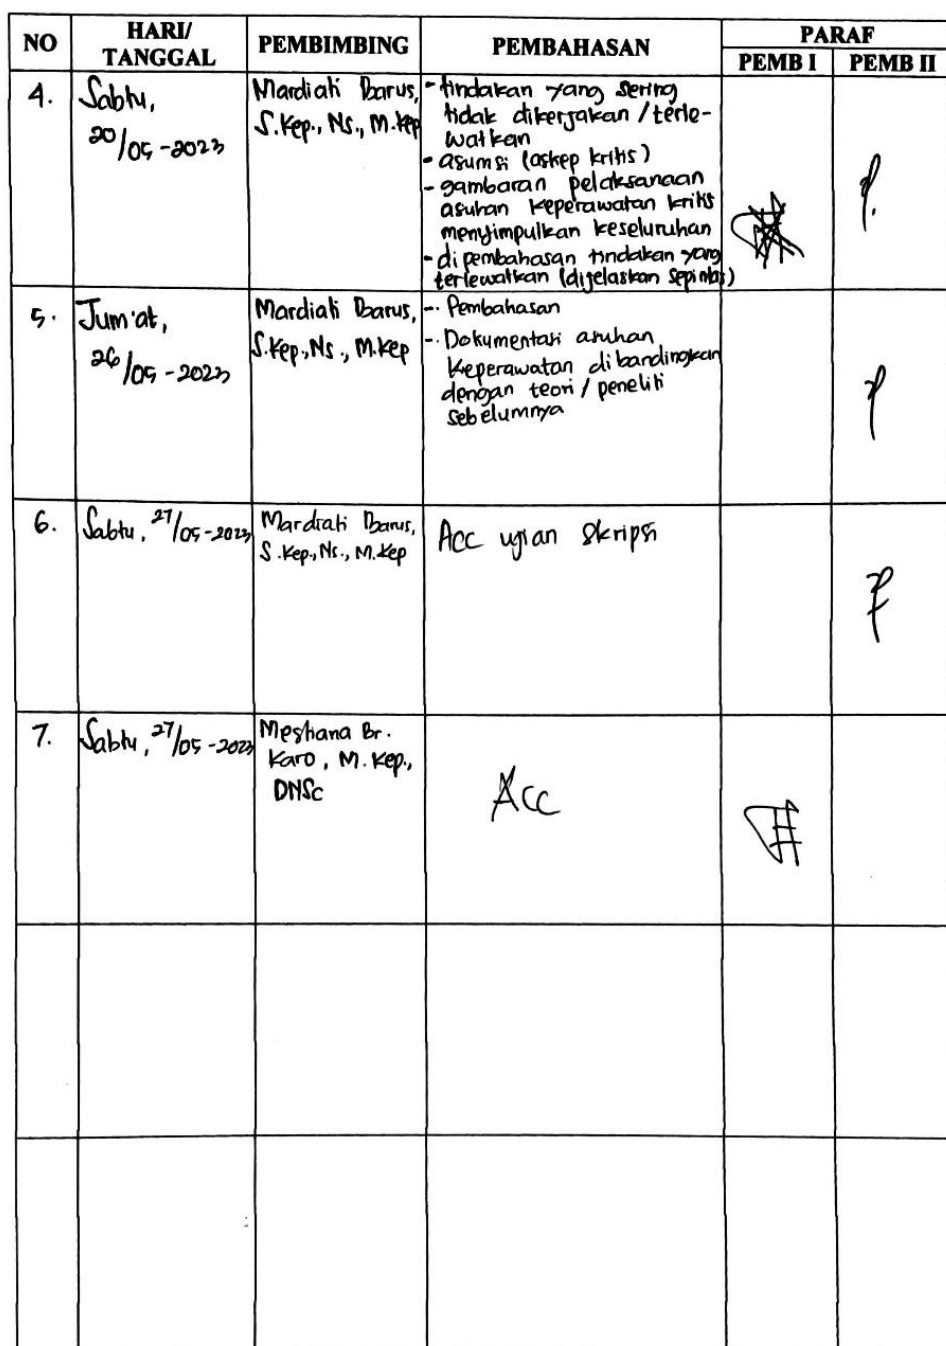 NO HARI/ TANGGAL PEMBIMBING PEMBAHASAN PARAF
PEMB I PEMB II
4. Sabtu, 20/05-2023
Mardiati Barus, S.Kep., Ns., M.Kep
- tindakan yang sering
tidak dikerjakan / terle-
watkan
- asumsi (askep kritis)
- gambaran pelaksanaan
asuhan keperawatan kritis
menyimpulkan keseluruhan
- di pembahasan tindakan yang
terlewatkan (dijelaskan sepintas)
5. Jum'at, 26/05-2023
Mardiati Barus, S.Kep., Ns., M.Kep
- Pembahasan
- Dokumentasi asuhan
keperawatan dibandingkan
dengan teori / peneliti
sebelumnya
6. Sabtu, 27/05-2023
Mardiati Barus, S.Kep., Ns., M.Kep
Acc ujian Skripsi
7. Sabtu, 27/05-2023
Mestiana Br. Karo, M.Kep., DNSc
Acc